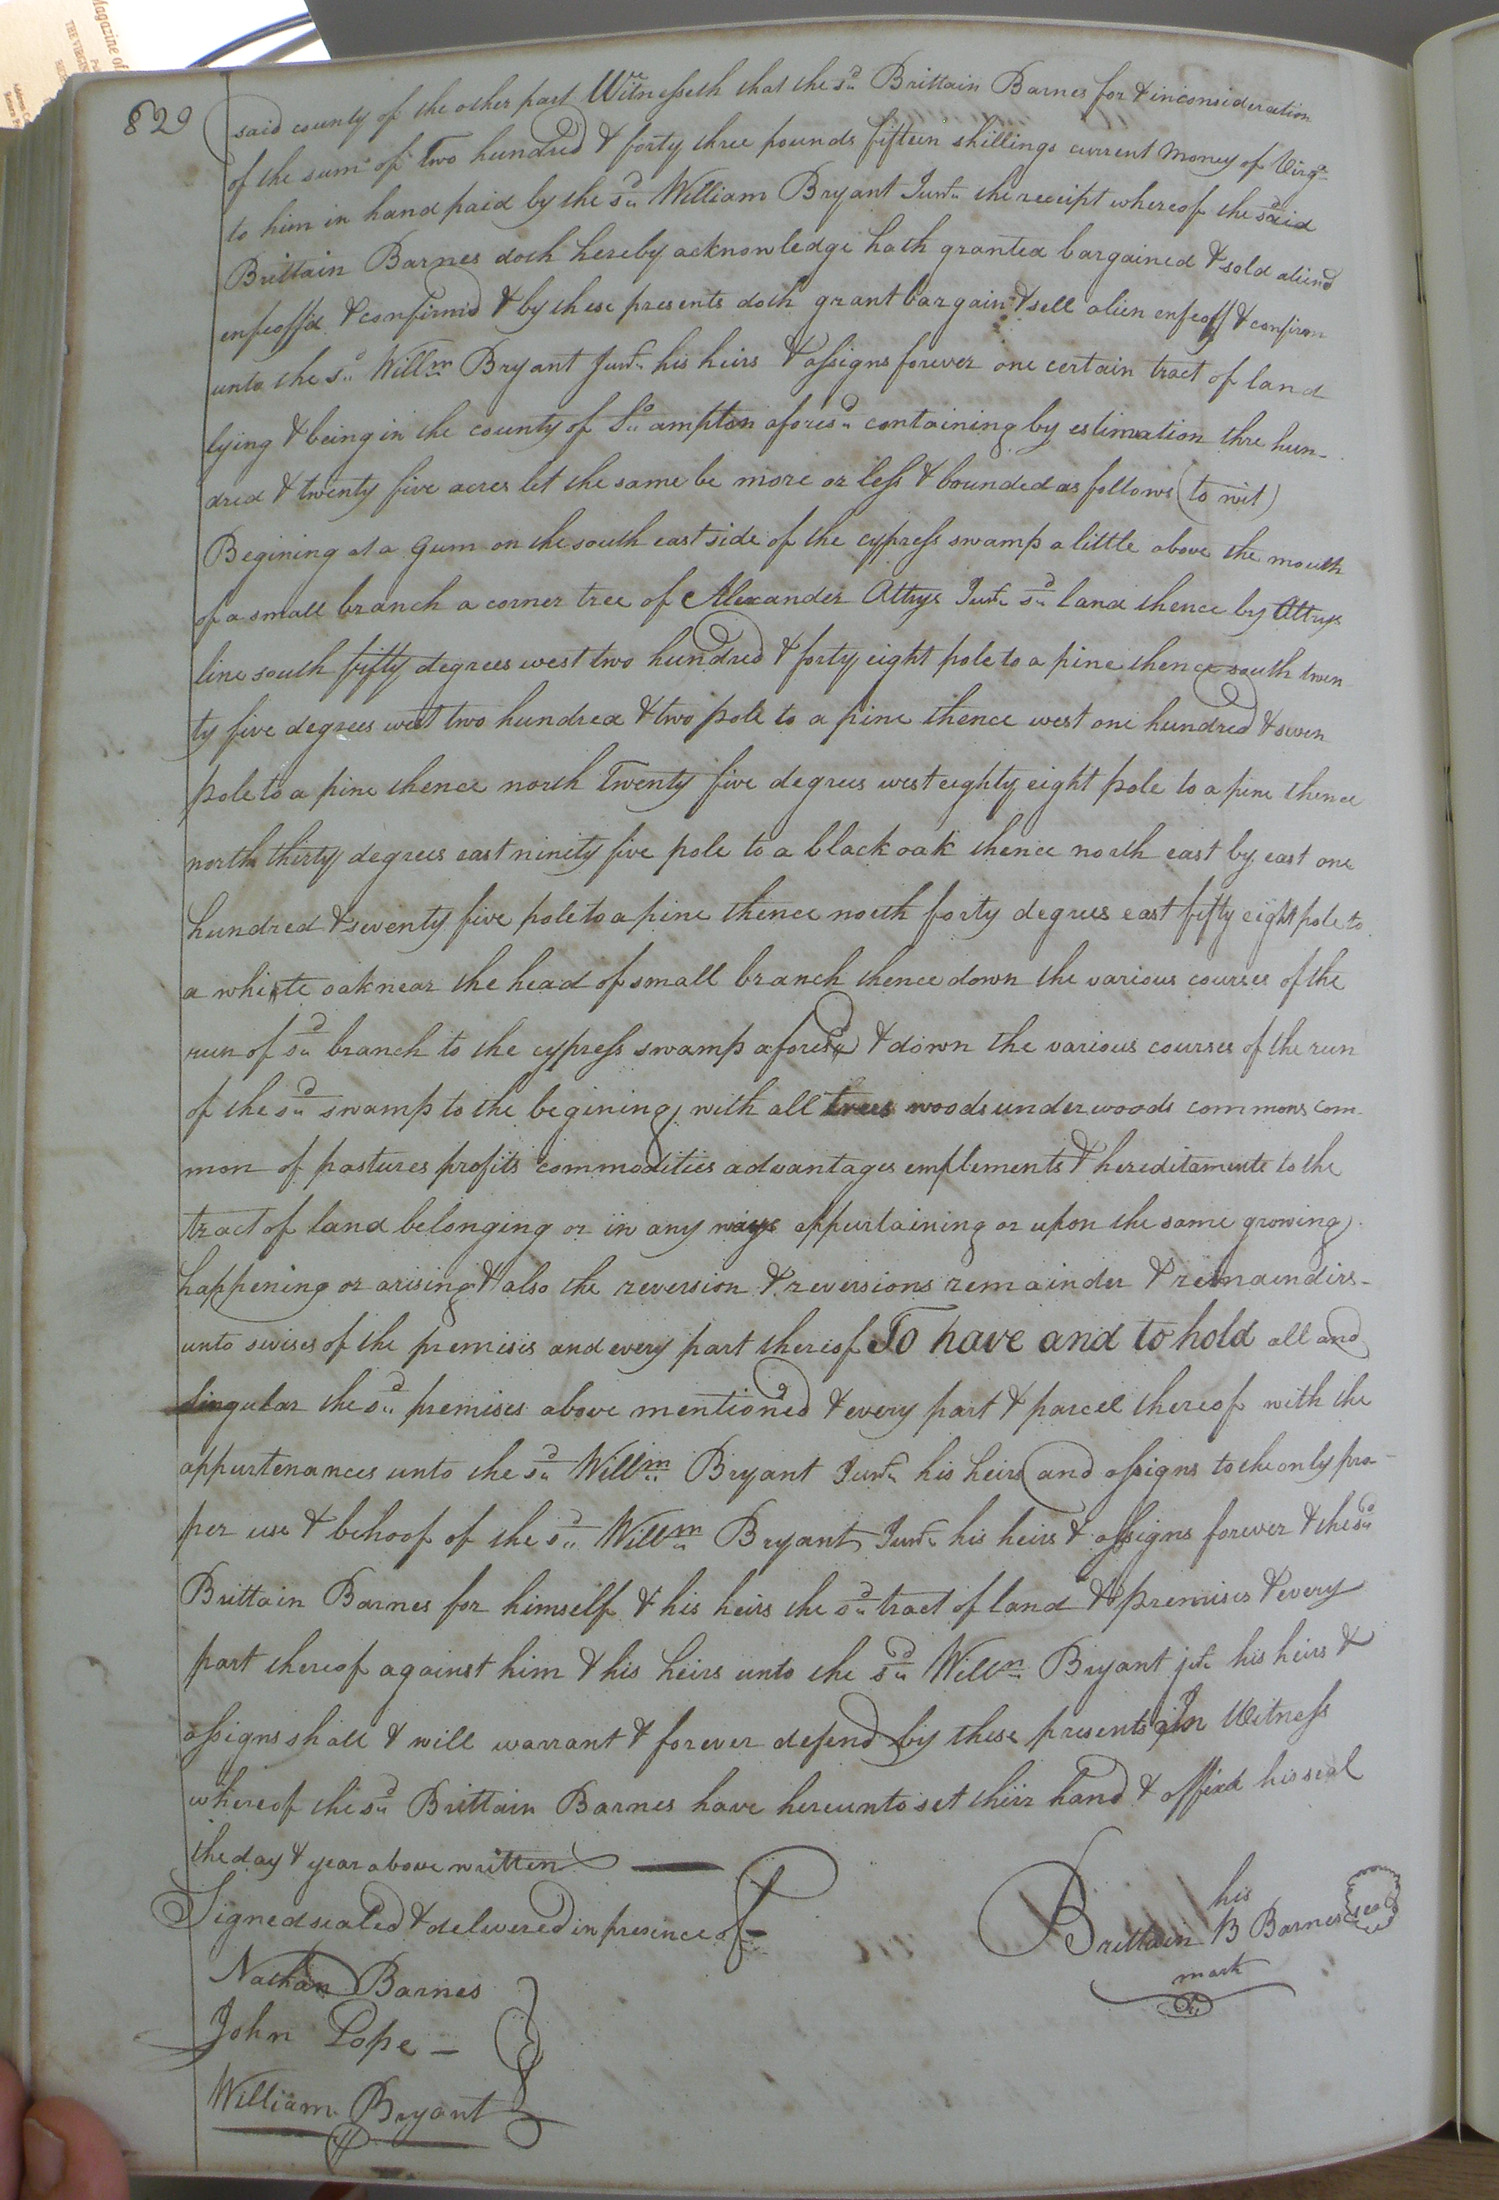 Magazine of
THE VIRGIN
829
said county of the other part Witnesseth that the sd Brittain Barnes for & inconsideration
of the sum of Two hundred & forty three pounds fifteen shillings current Money of Virga
to him in hand paid by the sd William Bryant Junr the receipt whereof the said
Brittain Barnes doth hereby acknowledge hath granted bargained & sold aliend
enfeoff'd & confirmd & by these presents doth grant bargain & sell alien enfeoff & confirm
unto the sd Willm Bryant Junr his heirs & assigns forever one certain tract of land
lying & being in the county of So ampton aforesd containing by estimation thre hun-
dred & twenty five acres let the same be more or less & bounded as follows (to wit)
Begining at a Gum on the south east side of the cypress swamp a little above the mouth
of a small branch a corner tree of Alexander Attrys Junr sd land thence by Attrys
line south fifty degrees west two hundred & forty eight pole to a pine thence south twen
ty five degrees west two hundred & two pole to a pine thence west one hundred & seven
pole to a pine thence north Twenty five degrees west eighty eight pole to a pine thence
north thirty degrees east ninity five pole to a black oak thence north east by east one
hundred & seventy five pole to a pine thence north forty degrees east fifty eight pole to
a white oak near the head of small branch thence down the various courses of the
run of sd branch to the cypress swamp aforesd & down the various courses of the run
of the sd swamp to the begining with all trees woods underwoods commons com-
mon of pastures profits commodities advantages emplements & hereditaments to the
tract of land belonging or in any ways appurtaining or upon the same growing
happening or arising & also the reversion & reversions remainder & remainders-
unto sevises of the premisis and every part thereof To have and to hold all and
singular the sd premises above mentioned & every part & parcel thereof with the
appurtenances unto the sd Willm Bryant Junr his heirs and assigns to the only pro-
per use & behoof of the sd Willm Bryant Junr his heirs & assigns forever & the sd
Brittain Barnes for himself & his heirs the sd tract of land & premises & every
part thereof against him & his heirs unto the sd Willm Bryant jr his heirs &
assigns shall & will warrant & forever defend by these presents In Witness
whereof the sd Brittain Barnes have hereunto set their hand & affixd his seal
the day & year above written
Signed sealed & delivered in presence of
Nathan Barnes
John Pope -
William Bryant
his
Brittain B Barnes seal
mark